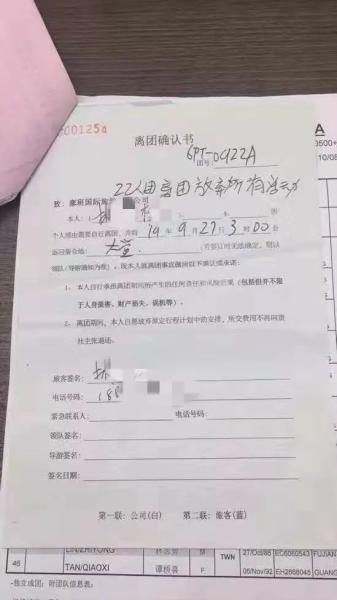 000125
A
0500+
10/08
离团确认书
团号: GPT-0922A
22人团离团放弃所有活动
致:豪班国际旅 公司
本人: 林
个人提出需要自行离团,并将 19 年 9 月 27 日 3 时 00 分
返回集合地: 大堂
(若签订时无法确定,则以
领队/导游通知为准)。现本人就离团事宜做出以下承诺:
1、本人自行承担离团期间所产生的任何责任和风险后果(包括但并不限
于人身损害、财产损失、误机等)。
2、离团期间,本人自愿放弃原定行程计划中的安排,所交费用不再向贵
社主张退还。
旅客签名: 林
电话号码: 188
紧急联系人: 电话号码:
领队签名:
导游签名:
签名日期:
第一联:公司(白) 第二联:旅客(蓝)
LIN/ZHIYONG M TWN 27/Oct/86 EC6060543 FUJIAN
46 TAN/QIAOXI 谭桥县 F 06/Nov/92 EH2668045 GUANG
-独立成团:附团队信息表: